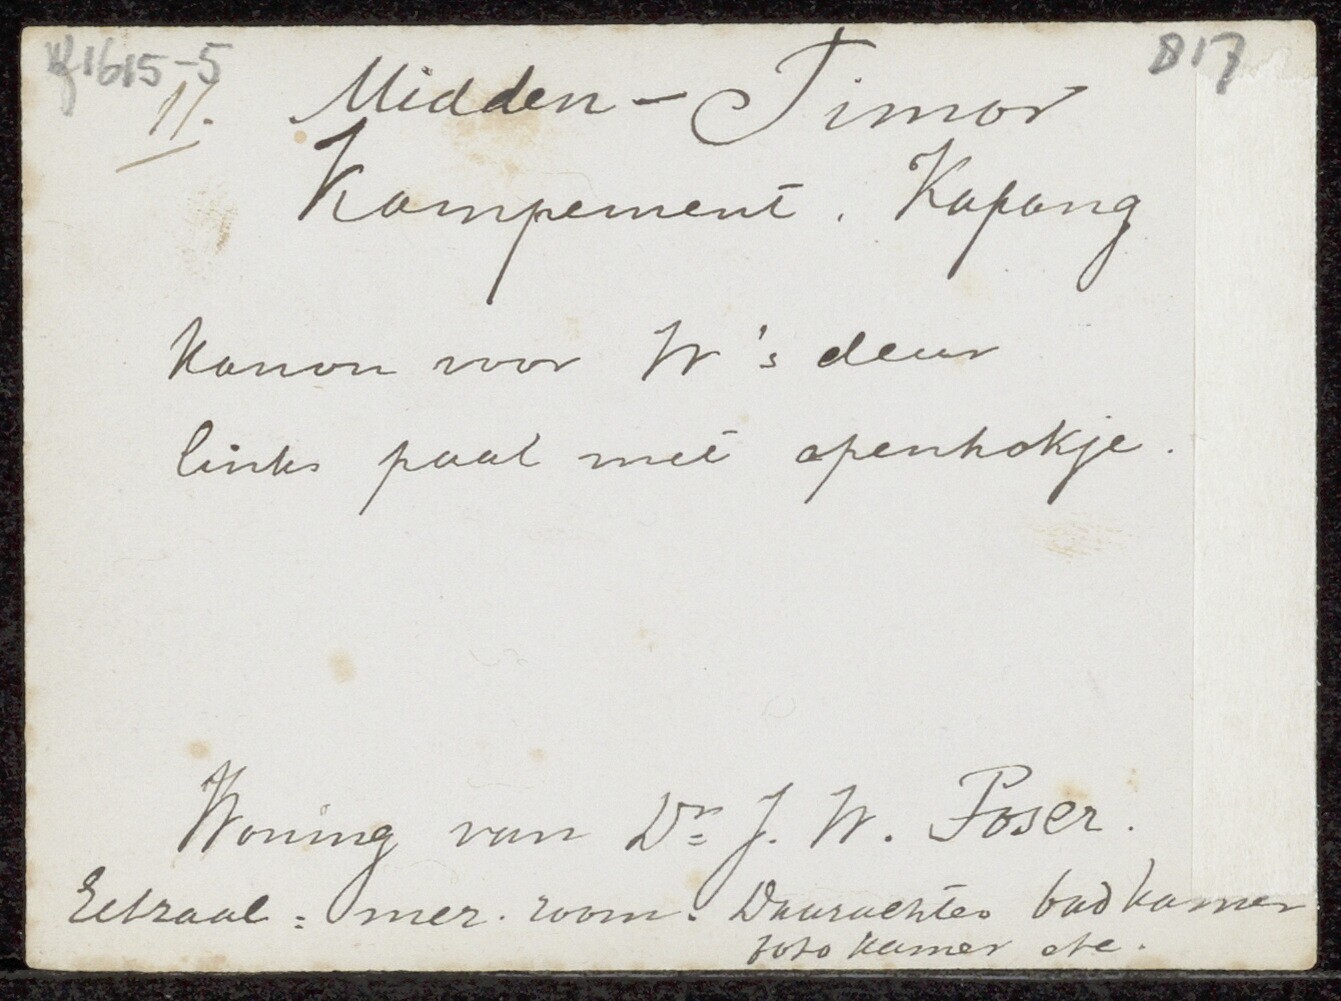 Wf1615-5
817
11.
Midden - Timor
Kampement. Kapang
Kanon voor W's deur
links paal met apenhokje.
Woning van Dr. J. W. Poser.
Eetzaal = mer. room. Daarachter badkamer
foto kamer etc.